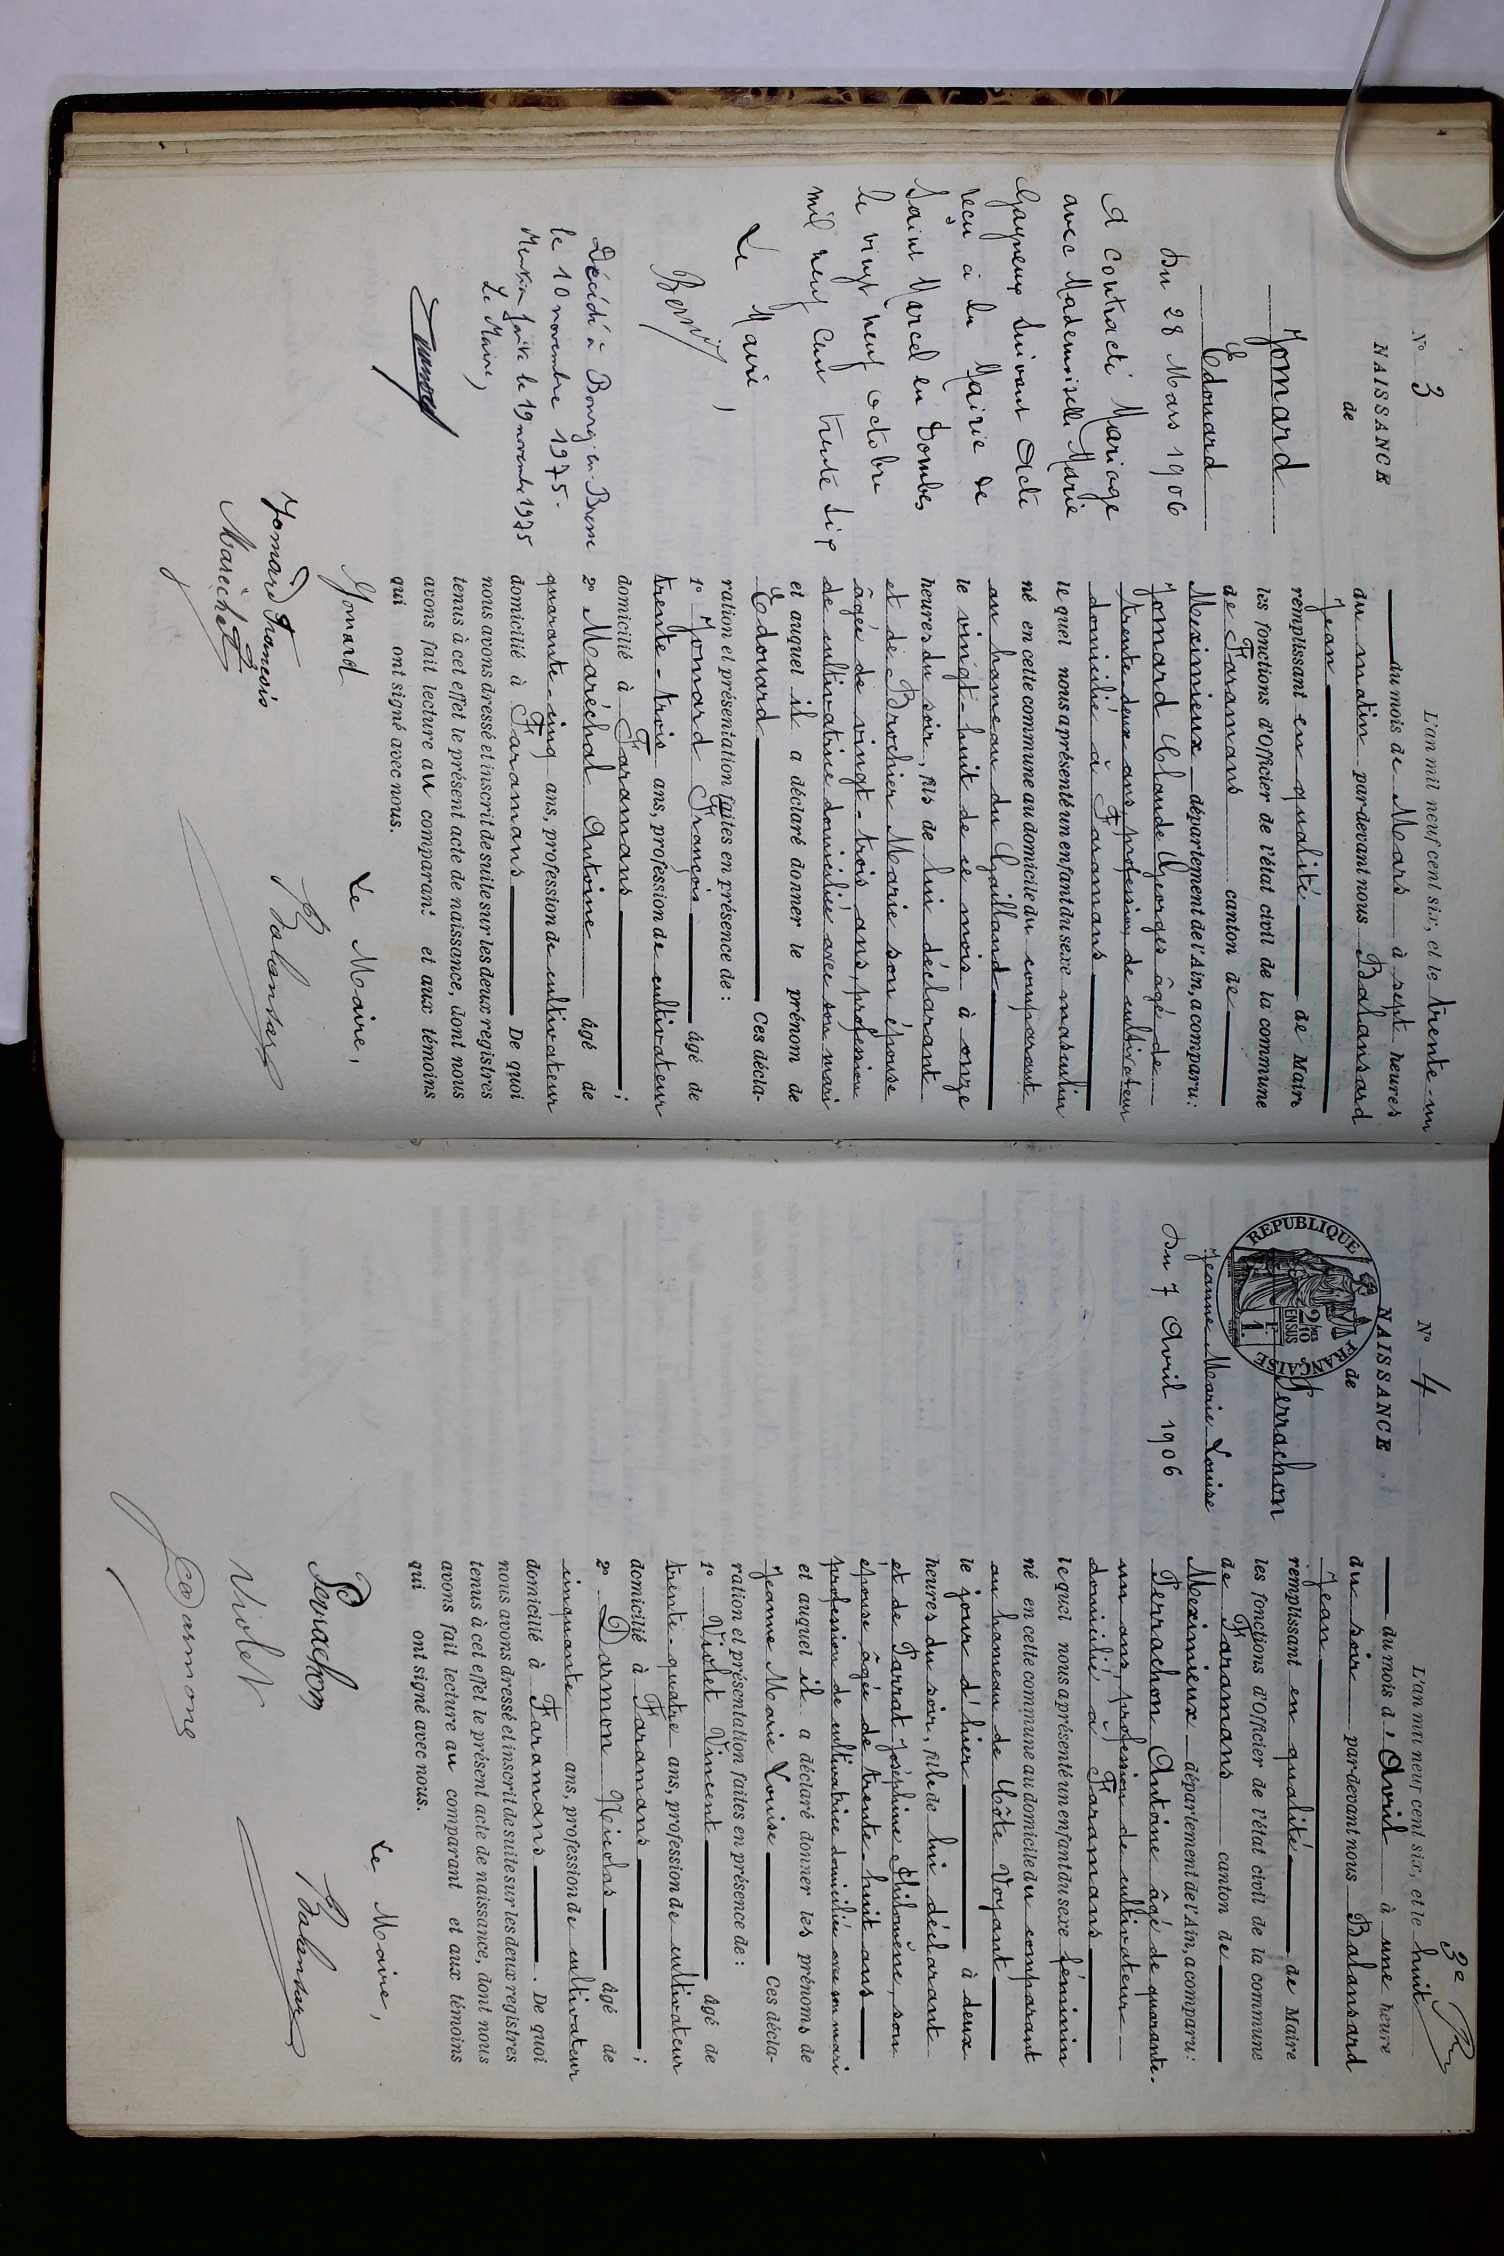 N° 3
NAISSANCE
de
Jomard
Edouard
Du 28 Mars 1906
A contracté Mariage
avec Mademoiselle Marie
Gagneux suivant acte
reçu à la Mairie de
Saint Marcel en Dombes
le vingt neuf octobre
mil neuf cent trente six
Le Maire,
Décédé à Bourg-en-Bresse
le 10 novembre 1975.
Mention faite le 19 novembre 1975
Le Maire,
L'an mil neuf cent six, et le trente-un
du mois de Mars à sept heures
du matin par devant nous Balansard
Jean
remplissant en qualité de Maire
les fonctions d'Officier de l'état civil de la commune
de Faramans canton de
Meximieux département de l'Ain, a comparu:
Jomard Claude Georges âgé de
trente deux ans, profession de cultivateur
domicilié à Faramans
lequel nous a présenté un enfant du sexe masculin
né en cette commune au domicile du comparant
au hameau du Gaillard
le vingt-huit de ce mois à onze
heures du soir, fils de lui déclarant
et de Brochier Marie son épouse
âgée de vingt-trois ans, profession
de cultivatrice domiciliée avec son mari
et auquel il a déclaré donner le prénom de
Edouard Ces décla-
ration et présentation faites en présence de:
1° Jomard François âgé de
trente-trois ans, profession de cultivateur
domicilié à Faramans ;
2° Maréchal Antoine âgé de
quarante-cinq ans, profession de cultivateur
domicilié à Faramans De quoi
nous avons dressé et inscrit de suite sur les deux registres
tenus à cet effet le présent acte de naissance, dont nous
avons fait lecture au comparant et aux témoins
qui ont signé avec nous.
Le Maire,
Jomard
Balansard
Jomard Francois
Maréchal
3e
N° 4
NAISSANCE
de
REPUBLIQUE FRANÇAISE
2/10 EN SUS
1 F.
Perrachon
Jeanne Marie Louise
Du 7 Avril 1906
L'an mil neuf cent six, et le huit
du mois d'Avril à une heure
du soir par devant nous Balansard
Jean
remplissant en qualité de Maire
les fonctions d'Officier de l'état civil de la commune
de Faramans canton de
Meximieux département de l'Ain, a comparu:
Perrachon Antoine âgé de quarante-
un ans, profession de cultivateur
domicilié à Faramans
lequel nous a présenté un enfant du sexe féminin
né en cette commune au domicile du comparant
au hameau de Côte Voyant
le jour d'hier à deux
heures du soir, fille de lui déclarant
et de Parrat Joséphine Philomène, son
épouse, âgée de trente-huit ans
profession de cultivatrice domiciliée avec son mari
et auquel il a déclaré donner les prénoms de
Jeanne Marie Louise Ces décla-
ration et présentation faites en présence de:
1° Violet Vincent âgé de
trente-quatre ans, profession de cultivateur
domicilié à Faramans ;
2° Darmon Nicolas âgé de
cinquante ans, profession de cultivateur
domicilié à Faramans . De quoi
nous avons dressé et inscrit de suite sur les deux registres
tenus à cet effet le présent acte de naissance, dont nous
avons fait lecture au comparant et aux témoins
qui ont signé avec nous.
Le Maire,
Perrachon
Balansard
Violet